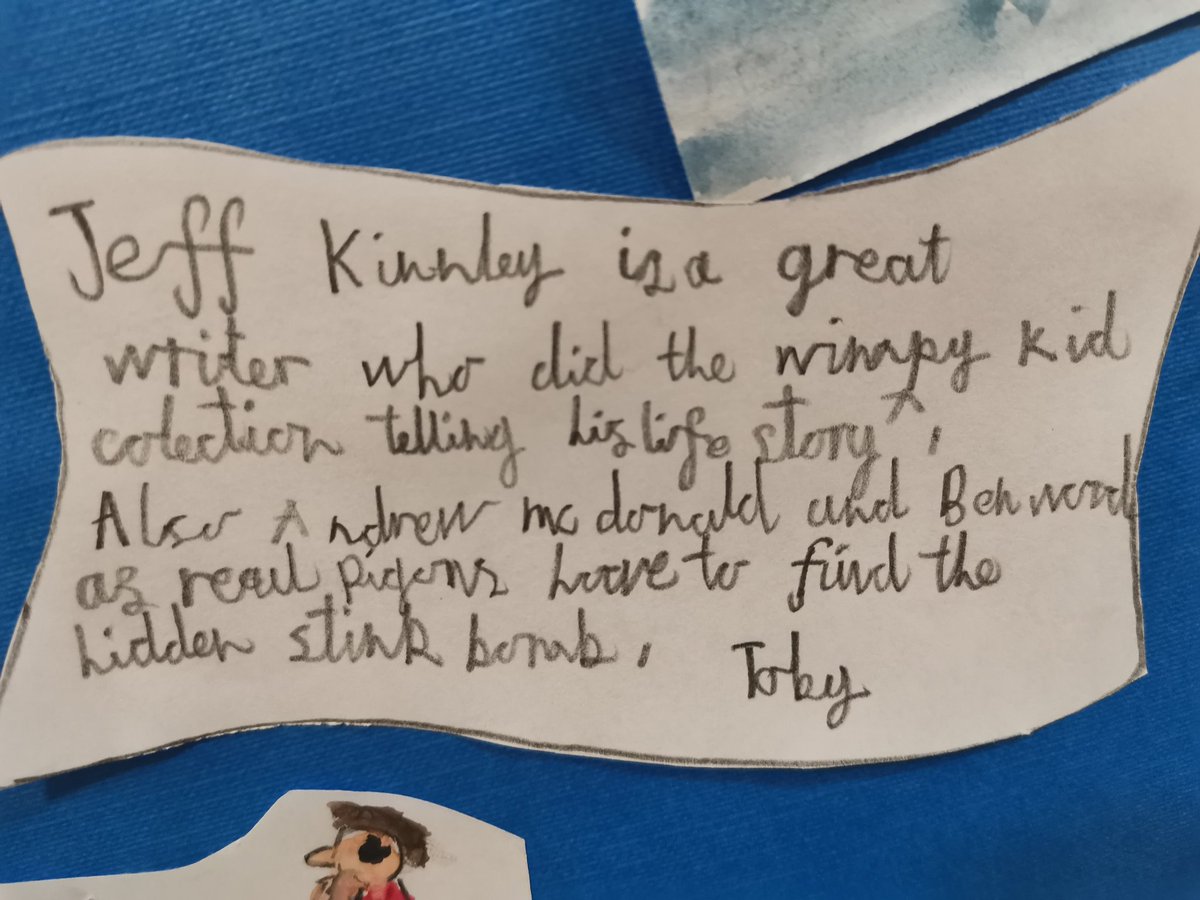 Jeff Kinnley is a great
writer who did the wimpy Kid
colection telling his life story.
Also Andrew mc donald and Ben wood
as real pigons have to find the
hidden stink bomb.
Toby